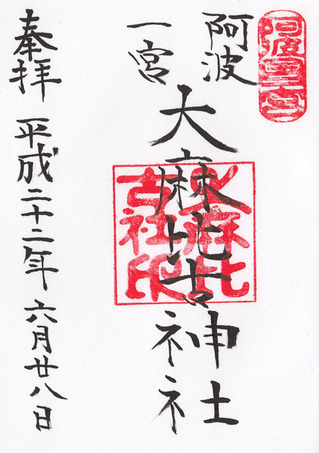 阿波一宮
阿波
一宮
大麻比古神社
大麻比
古社印
奉拝 平成二十二年 六月廿八日